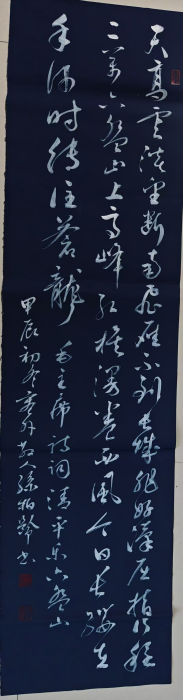 天高雲淡望断南飛雁不到長城非好漢屈指行程
二萬六盤山上高峰紅旗漫卷西風今日長纓在
手何時縛住蒼龍 毛主席詩詞清平樂六盤山
甲辰初冬塞外散人孫柏齡書